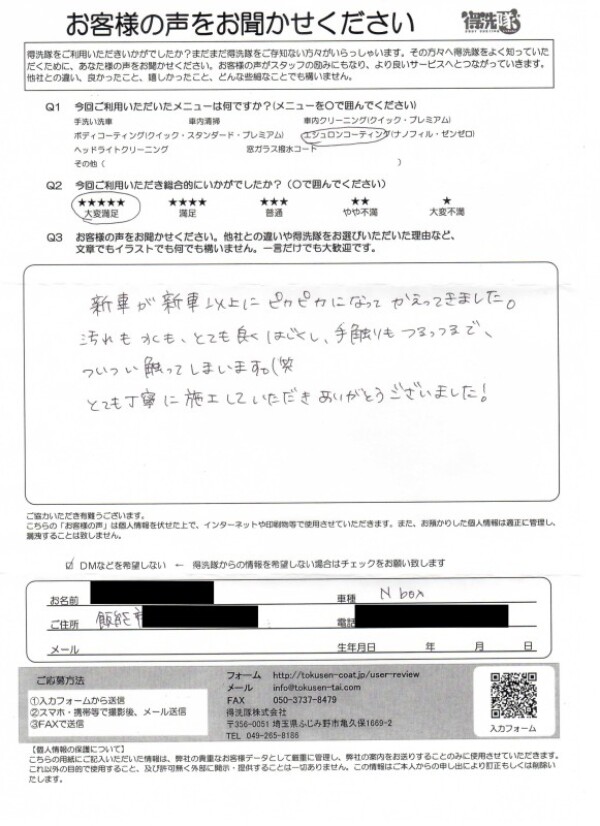 お客様の声をお聞かせください
得洗隊
得洗隊をご利用いただきいかがでしたか？まだまだ得洗隊をご存知ない方々がいらっしゃいます。その方々へ得洗隊をよく知っていた
だくために、あなた様の声をお聞かせください。お客様の声がスタッフの励みにもなり、より良いサービスへとつながっていきます。
他社との違い、良かったこと、嬉しかったこと、どんな些細なことでも構いません。
Q1 今回ご利用いただいたメニューは何ですか？（メニューを〇で囲んでください）
手洗い洗車 車内清掃 車内クリーニング(クイック・プレミアム)
ボディコーティング(クイック・スタンダード・プレミアム) エシュロンコーティング(ナノフィル・ゼンゼロ)
ヘッドライトクリーニング 窓ガラス撥水コート
その他（ ）
Q2 今回ご利用いただき総合的にいかがでしたか？（〇で囲んでください）
★★★★★ ★★★★ ★★★ ★★ ★
大変満足 満足 普通 やや不満 大変不満
Q3 お客様の声をお聞かせください。他社との違いや得洗隊をお選びいただいた理由など、
文章でもイラストでも何でも構いません。一言だけでも大歓迎です。
新車が新車以上にピカピカになってかえってきました。
汚れも水も、とても良くはじくし、手触りもつるっつるで、
ついつい触ってしまいます。(笑
とても丁寧に施工していただきありがとうございました!
ご協力いただき有難うございます。
こちらの「お客様の声」は個人情報を伏せた上で、インターネットや印刷物等で使用させていただきます。また、お預かりした個人情報は適正に管理し、
漏洩することは致しません。
☑ DMなどを希望しない ← 得洗隊からの情報を希望しない場合はチェックをお願い致します
お名前 車種 N box
ご住所 飯能市 電話
メール 生年月日 年 月 日
ご応募方法
①入力フォームから送信
②スマホ・携帯等で撮影後、メール送信
③FAXで送信
フォーム http://tokusen-coat.jp/user-review
メール info@tokusen-tai.com
FAX 050-3737-8479
得洗隊株式会社
〒356-0051 埼玉県ふじみ野市亀久保1669-2
TEL 049-265-8186
入力フォーム
【個人情報の保護について】
こちらの用紙にご記入いただいた情報は、弊社の貴重なお客様データとして厳重に管理し、弊社の案内をお送りすることのみに使用させていただきます。
これ以外の目的で使用すること、及び許可無く外部に開示・提供することは一切ありません。この情報はご本人からの申し出により訂正もしくは削除い
たします。